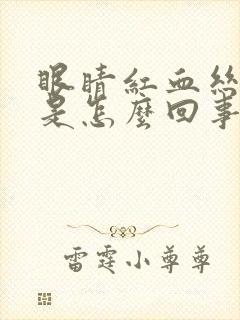 眼睛紅血絲
是怎麼回事
雷霆小尊尊